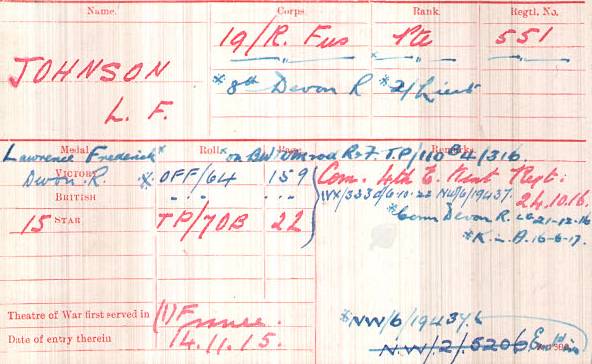 Name. Corps. Rank. Regtl. No.
19/R. Fus Pte 551
JOHNSON
" " "
L. F.
*8th Devon R *2/Lieut
Medal. Roll. Page. Remarks.
Lawrence Frederick * on BW Vm rod R.F. T.P/110 B4/316.
VICTORY Devon R. * OFF/64 159 Com. 4th E. Kent Regt:
BRITISH " " " " IVX/3330/6-10-22 NW/6/19437. 24.10.16.
*Com Devon R. 21-12-16
15 STAR TP/70B 22
*K. in A. 16-6-17.
Theatre of War first served in (1) France.
*NW/6/19437.
Date of entry therein 14.11.15.
N.W/2/5206